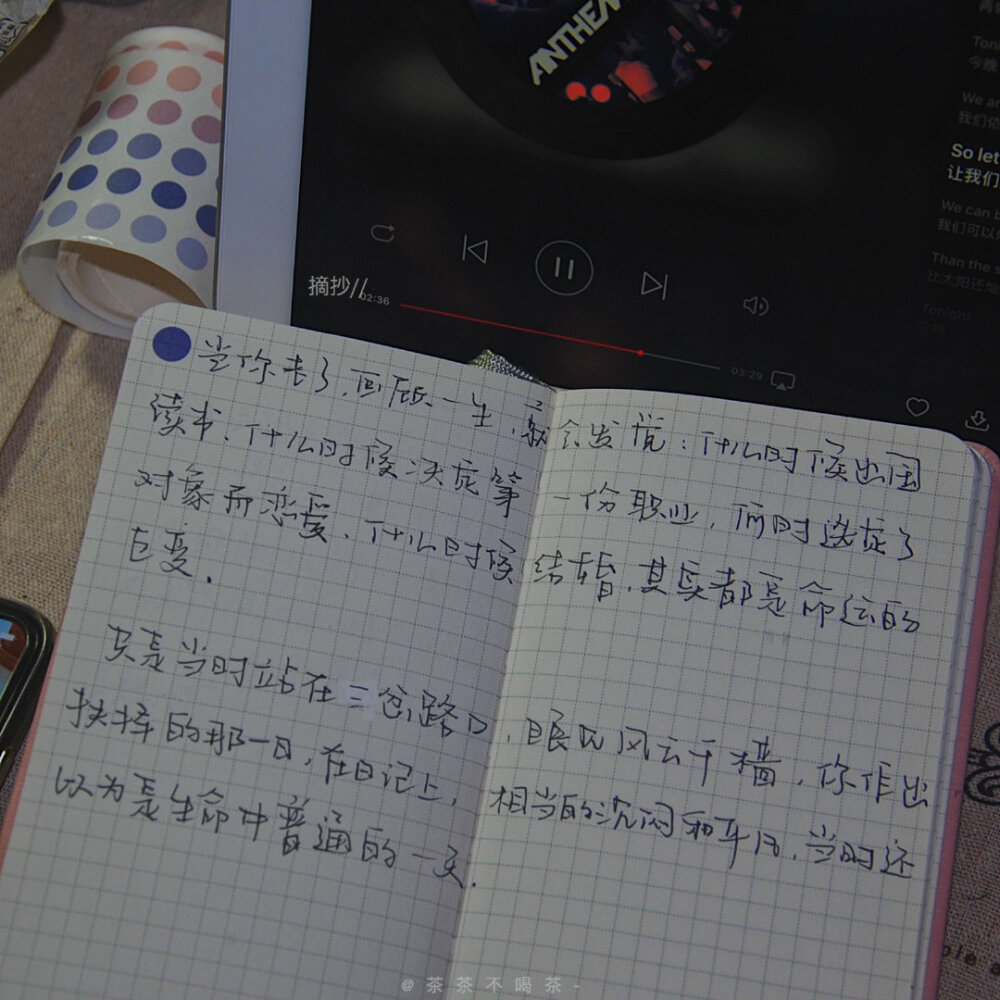 ANTHEM
Toni
今晚
We a
我们依
So let
让我们
We can
我们可以
Than the
比太阳还
Tonight
今晚
摘抄//
02:36
03:29
当你老了,回顾一生,就会发觉:什么时候出国
读书、什么时候决定第一份职业,何时选定了
对象而恋爱、什么时候结婚,其实都是命运的
巨变.
只是当时站在三岔路口,眼见风云千樯,你作出
抉择的那一日,在日记上,相当的沉闷和平凡,当时还
以为是生命中普通的一天.
@茶茶不喝茶-